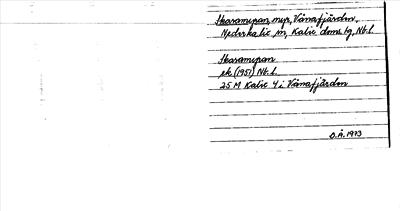 Skaramyran, myr, Vännäfjärden,
Nederkalix sn, Kalix doms. tg, Nb. l.
Skaramyran
ek (1957) Nb. l.
25 M Kalix 4 i Vännäfjärden
O.Å. 1973